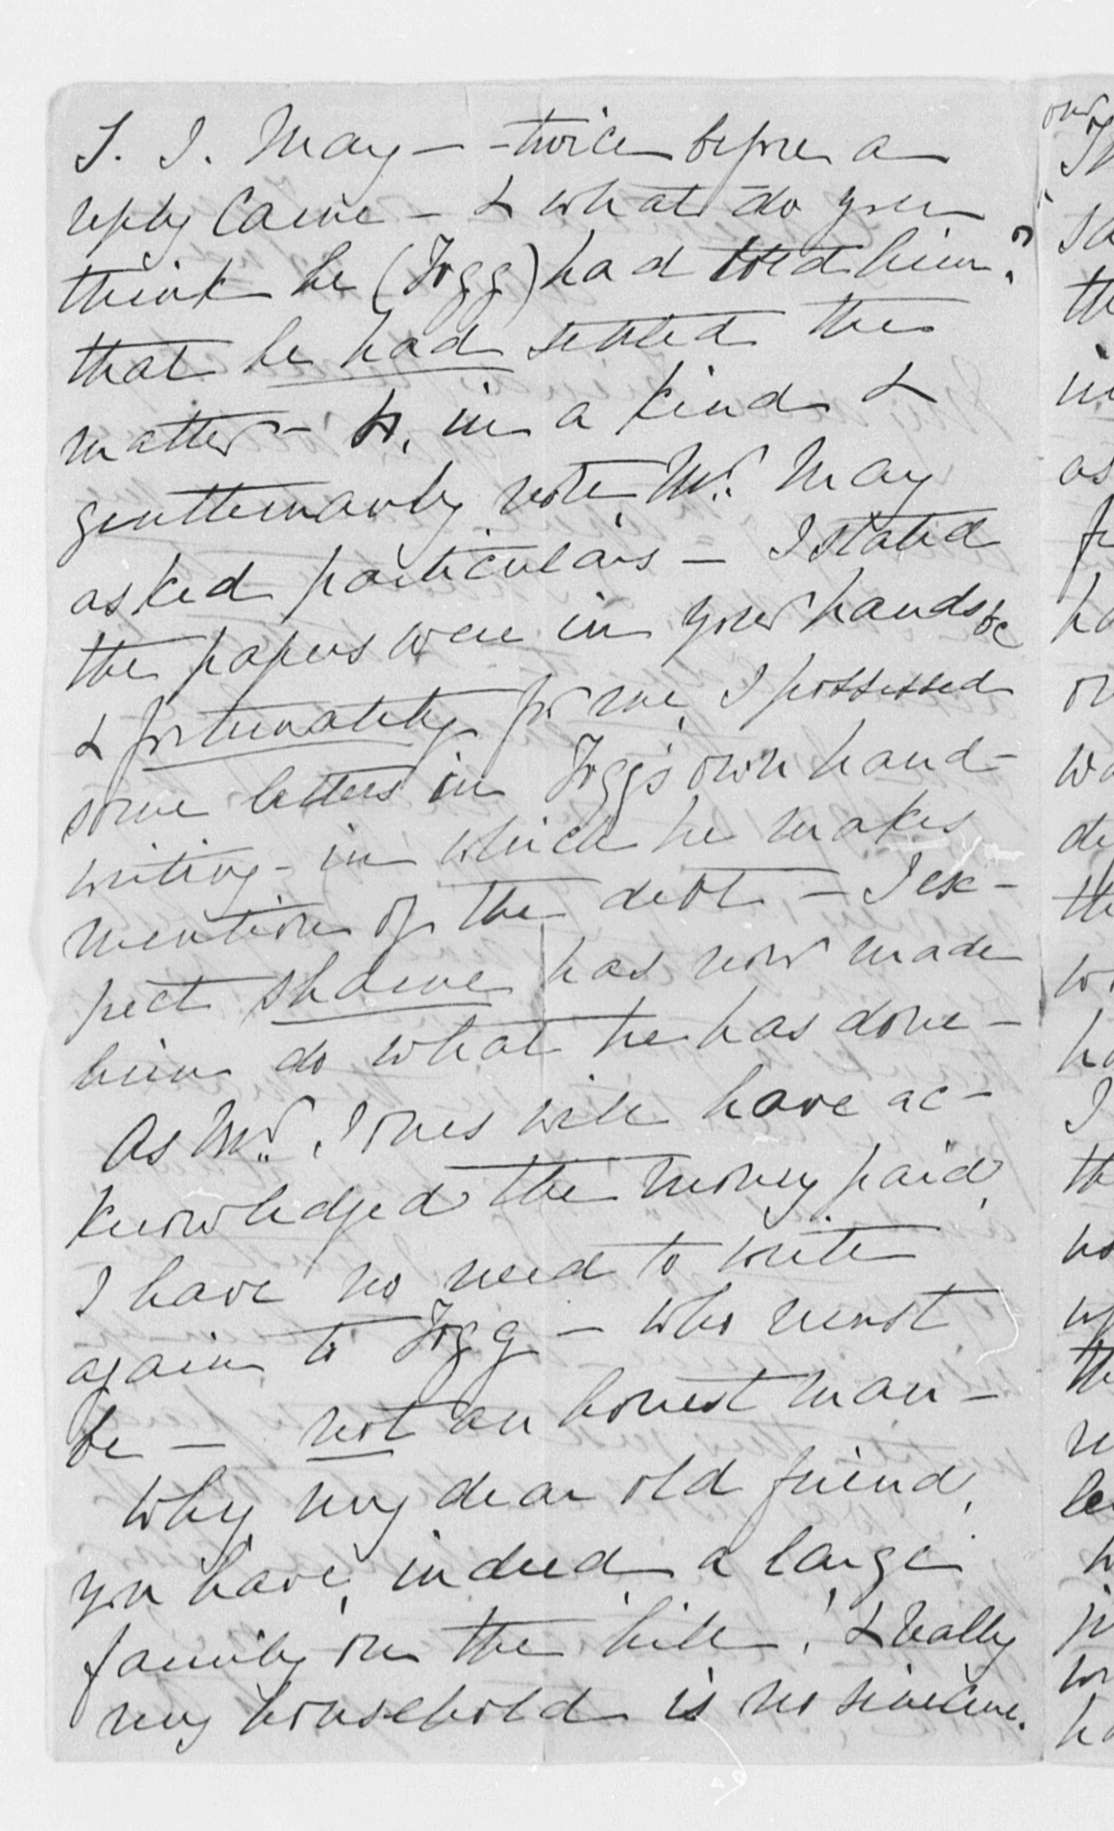 S. J. May – twice before a
reply came – & what do you
think he (Fogg) had told him?
that he had settled the
matter – &, in a kind &
gentlemanly note, Mr. May
asked particulars – I stated
the papers were in your hands &c
& fortunately for me, I possessed
some letters in Fogg's own hand-
writing – in which he makes
mention of the debt – I ex-
pect shame has now made
him do what he has done –
As Mr. Jones will have ac-
knowledged the money paid,
I have no need to write
again to Fogg – who must
be – not an honest man –
Why my dear old friend,
you have, indeed a large
family on the hill! & really
my household is no sinecure.
our